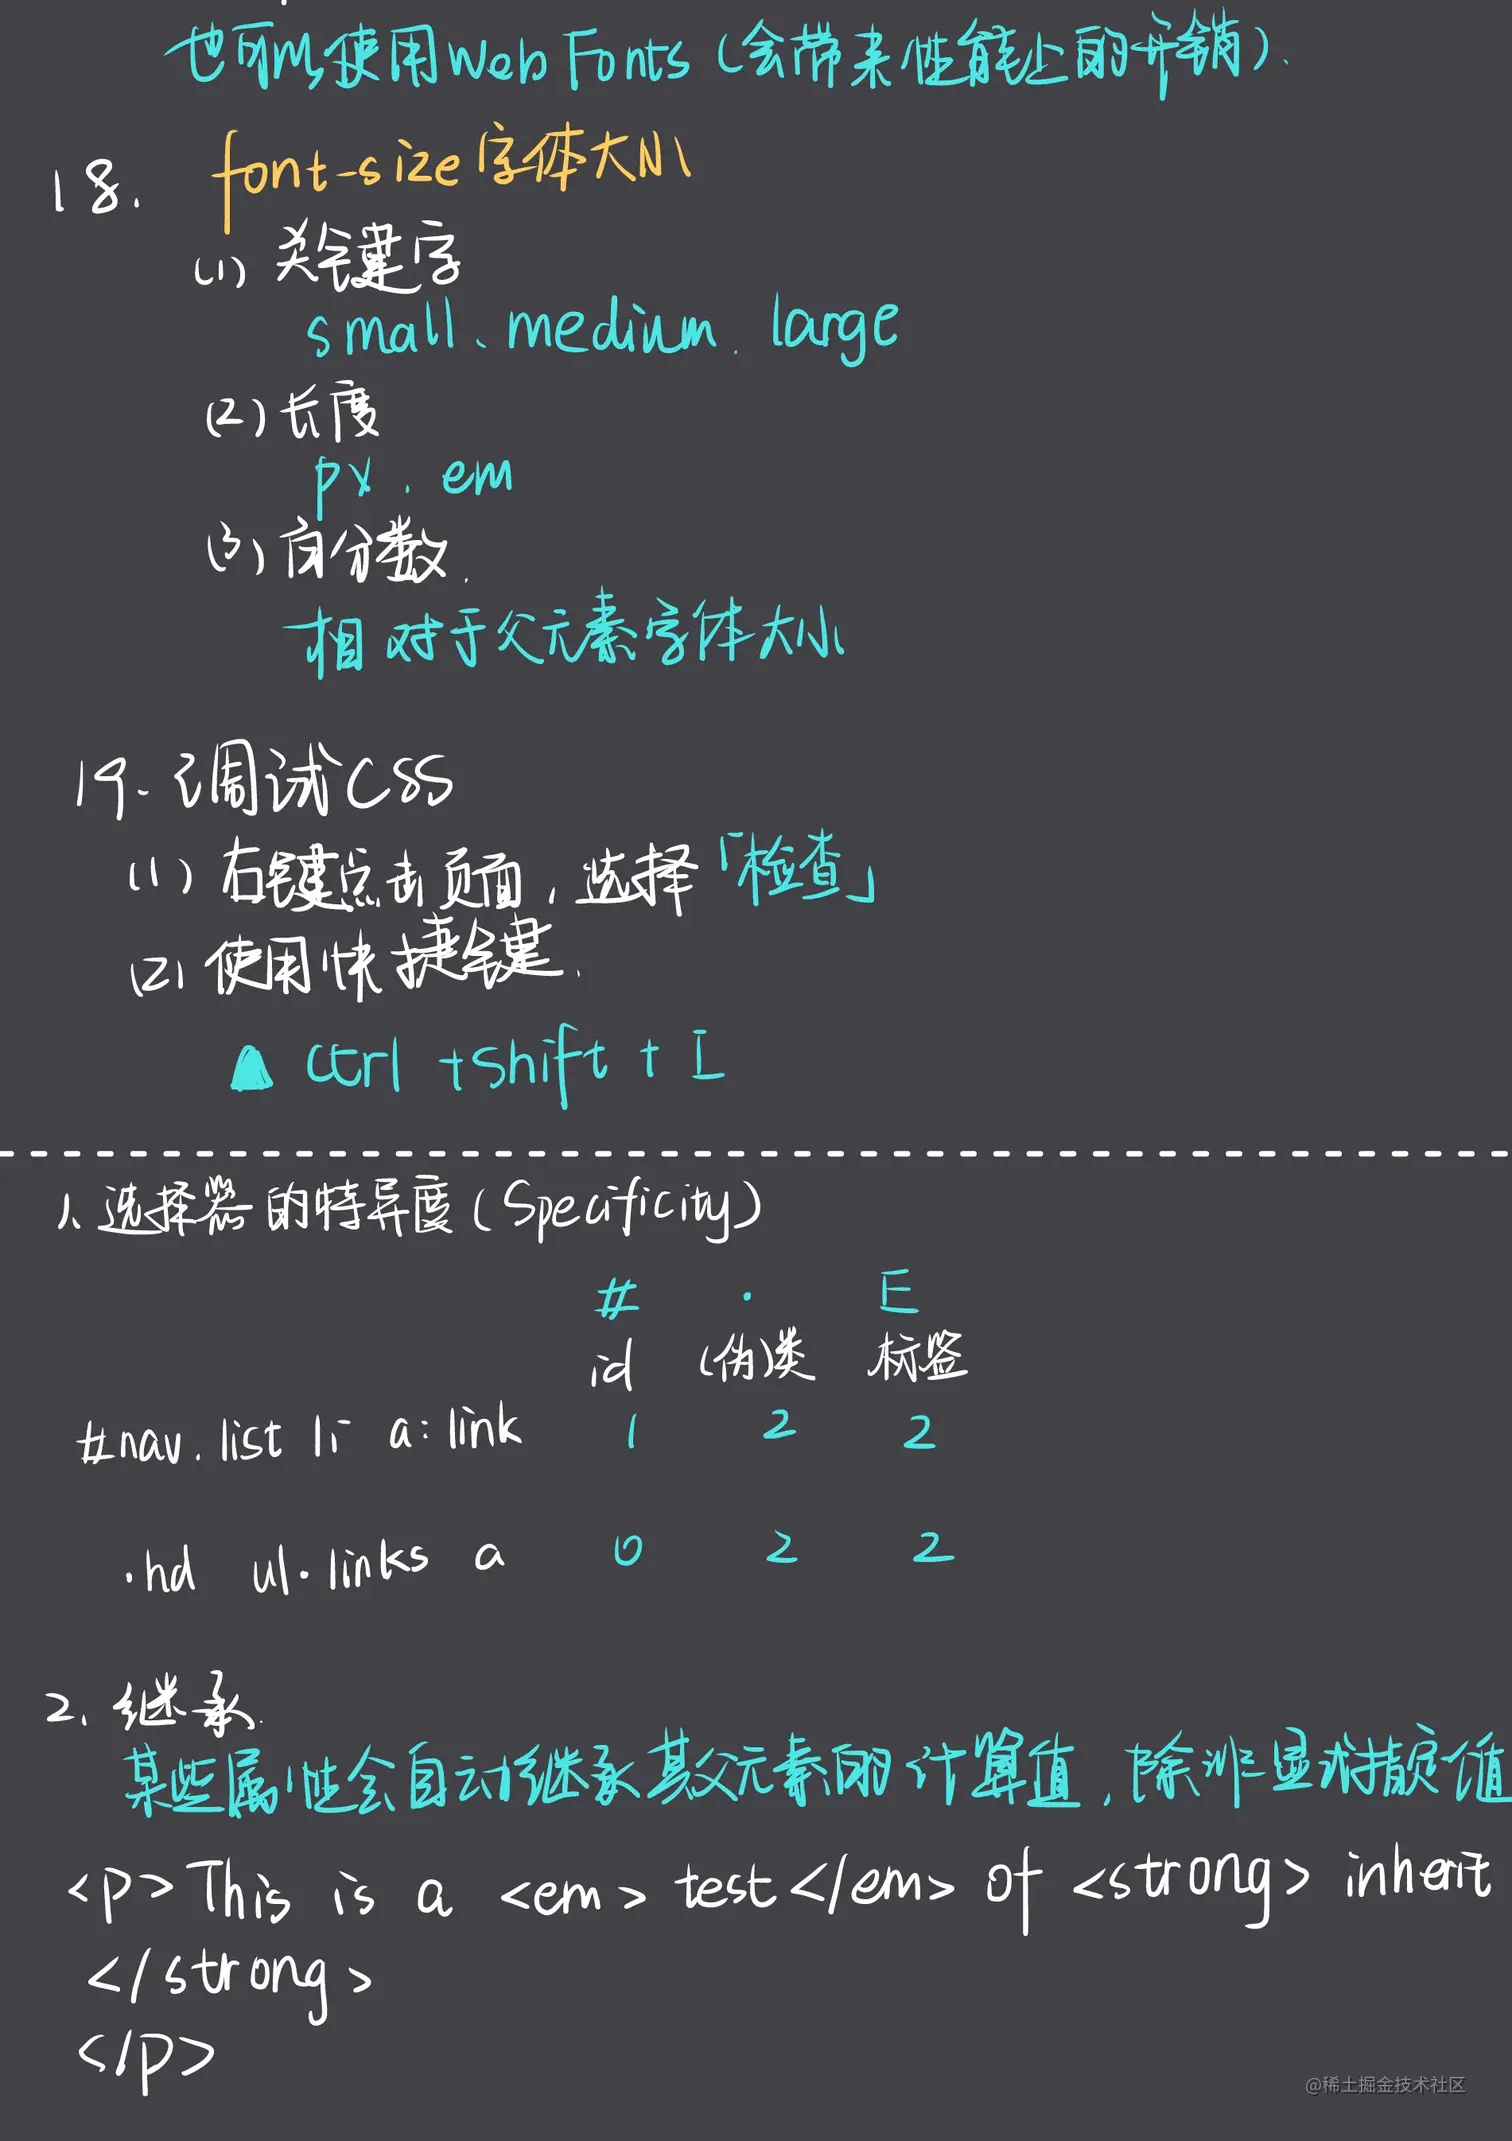 也可以使用Web Fonts(会带来性能上的开销).
18. font-size字体大小
(1) 关键字
small、medium、large
(2) 长度
px、em
(3) 百分数.
相对于父元素字体大小
19. 调试CSS
(1) 右键点击页面,选择「检查」
(2) 使用快捷键.
▲ Ctrl + Shift + I
1. 选择器的特异度(Specificity)
# . E
id (伪)类 标签
#nav .list li a:link 1 2 2
.hd ul.links a 0 2 2
2. 继承.
某些属性会自动继承其父元素的计算值,除非显式指定值
<p>This is a <em>test</em> of <strong> inherit
</strong>
</p>
@稀土掘金技术社区